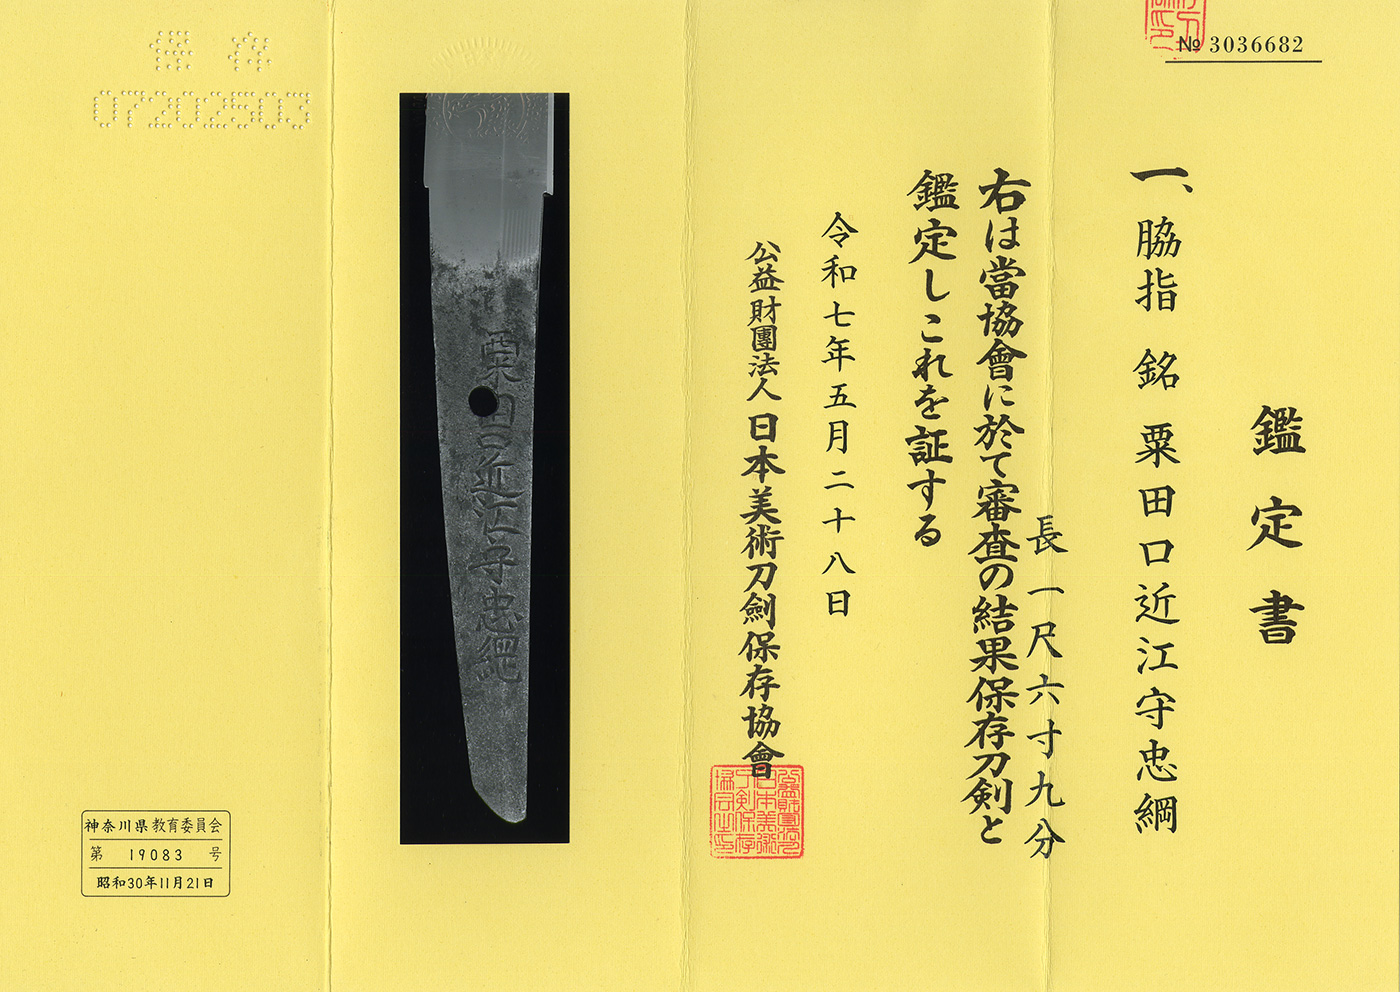 № 3036682
鑑定書
一、脇指 銘 粟田口近江守忠綱
長 一尺六寸九分
右は當協會に於て審査の結果保存刀剣と
鑑定しこれを証する
令和七年五月二十八日
公益財團法人 日本美術刀劍保存協會
粟田口近江守忠綱
保存
07202503
神奈川県教育委員会
第 19083 号
昭和30年11月21日